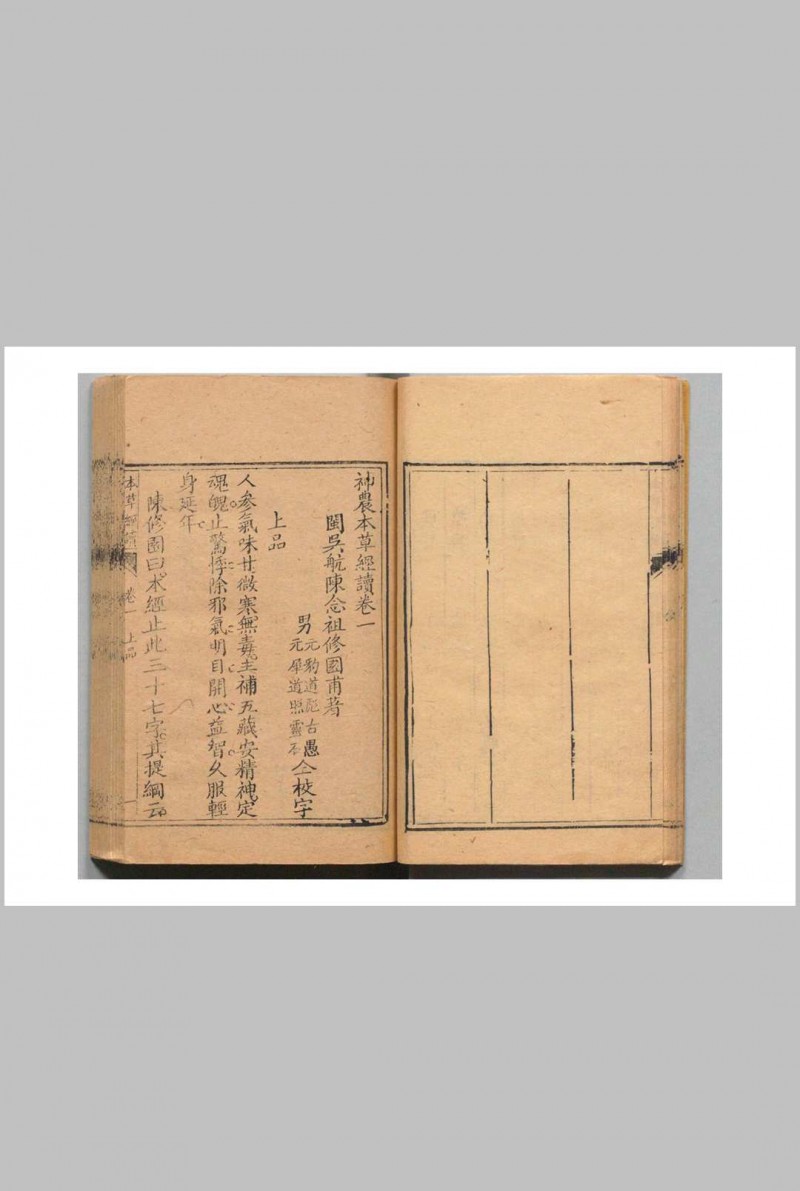 神農本草經讀卷一
閩吳航陳念祖修園甫著
男
元豹道彪古愚
元犀道照靈石
仝校字
上品
人參氣味甘微寒無毒主補五臟安精神定
魂魄止驚悸除邪氣明目開心益智久服輕
身延年
陳修園曰本經止此三十七字其提綱云
本草經讀 卷一 上品 一